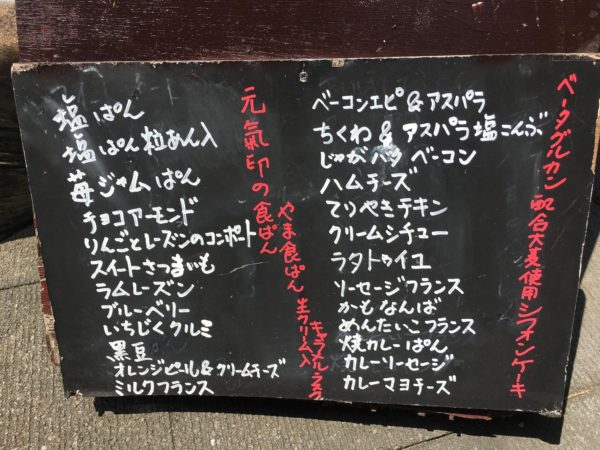 塩ぱん
塩ぱん粒あん入
苺ジャムぱん
チョコアーモンド
りんごとレーズンのコンポート
スイートさつまいも
ラムレーズン
ブルーベリー
いちじくクルミ
黒豆
オレンジピール&クリームチーズ
ミルクフランス
元氣印の食ぱん
やま食ぱん
生クリーム入
キャラメルラスク
ベーコンエピ&アスパラ
ちくわ&アスパラ塩こんぶ
じゃがバタベーコン
ハムチーズ
てりやきチキン
クリームシチュー
ラタトゥイユ
ソーセージフランス
かもなんば
めんたいこフランス
焼カレーぱん
カレーソーセージ
カレーマヨチーズ
ベータグルカン配合大麦使用シフォンケーキ